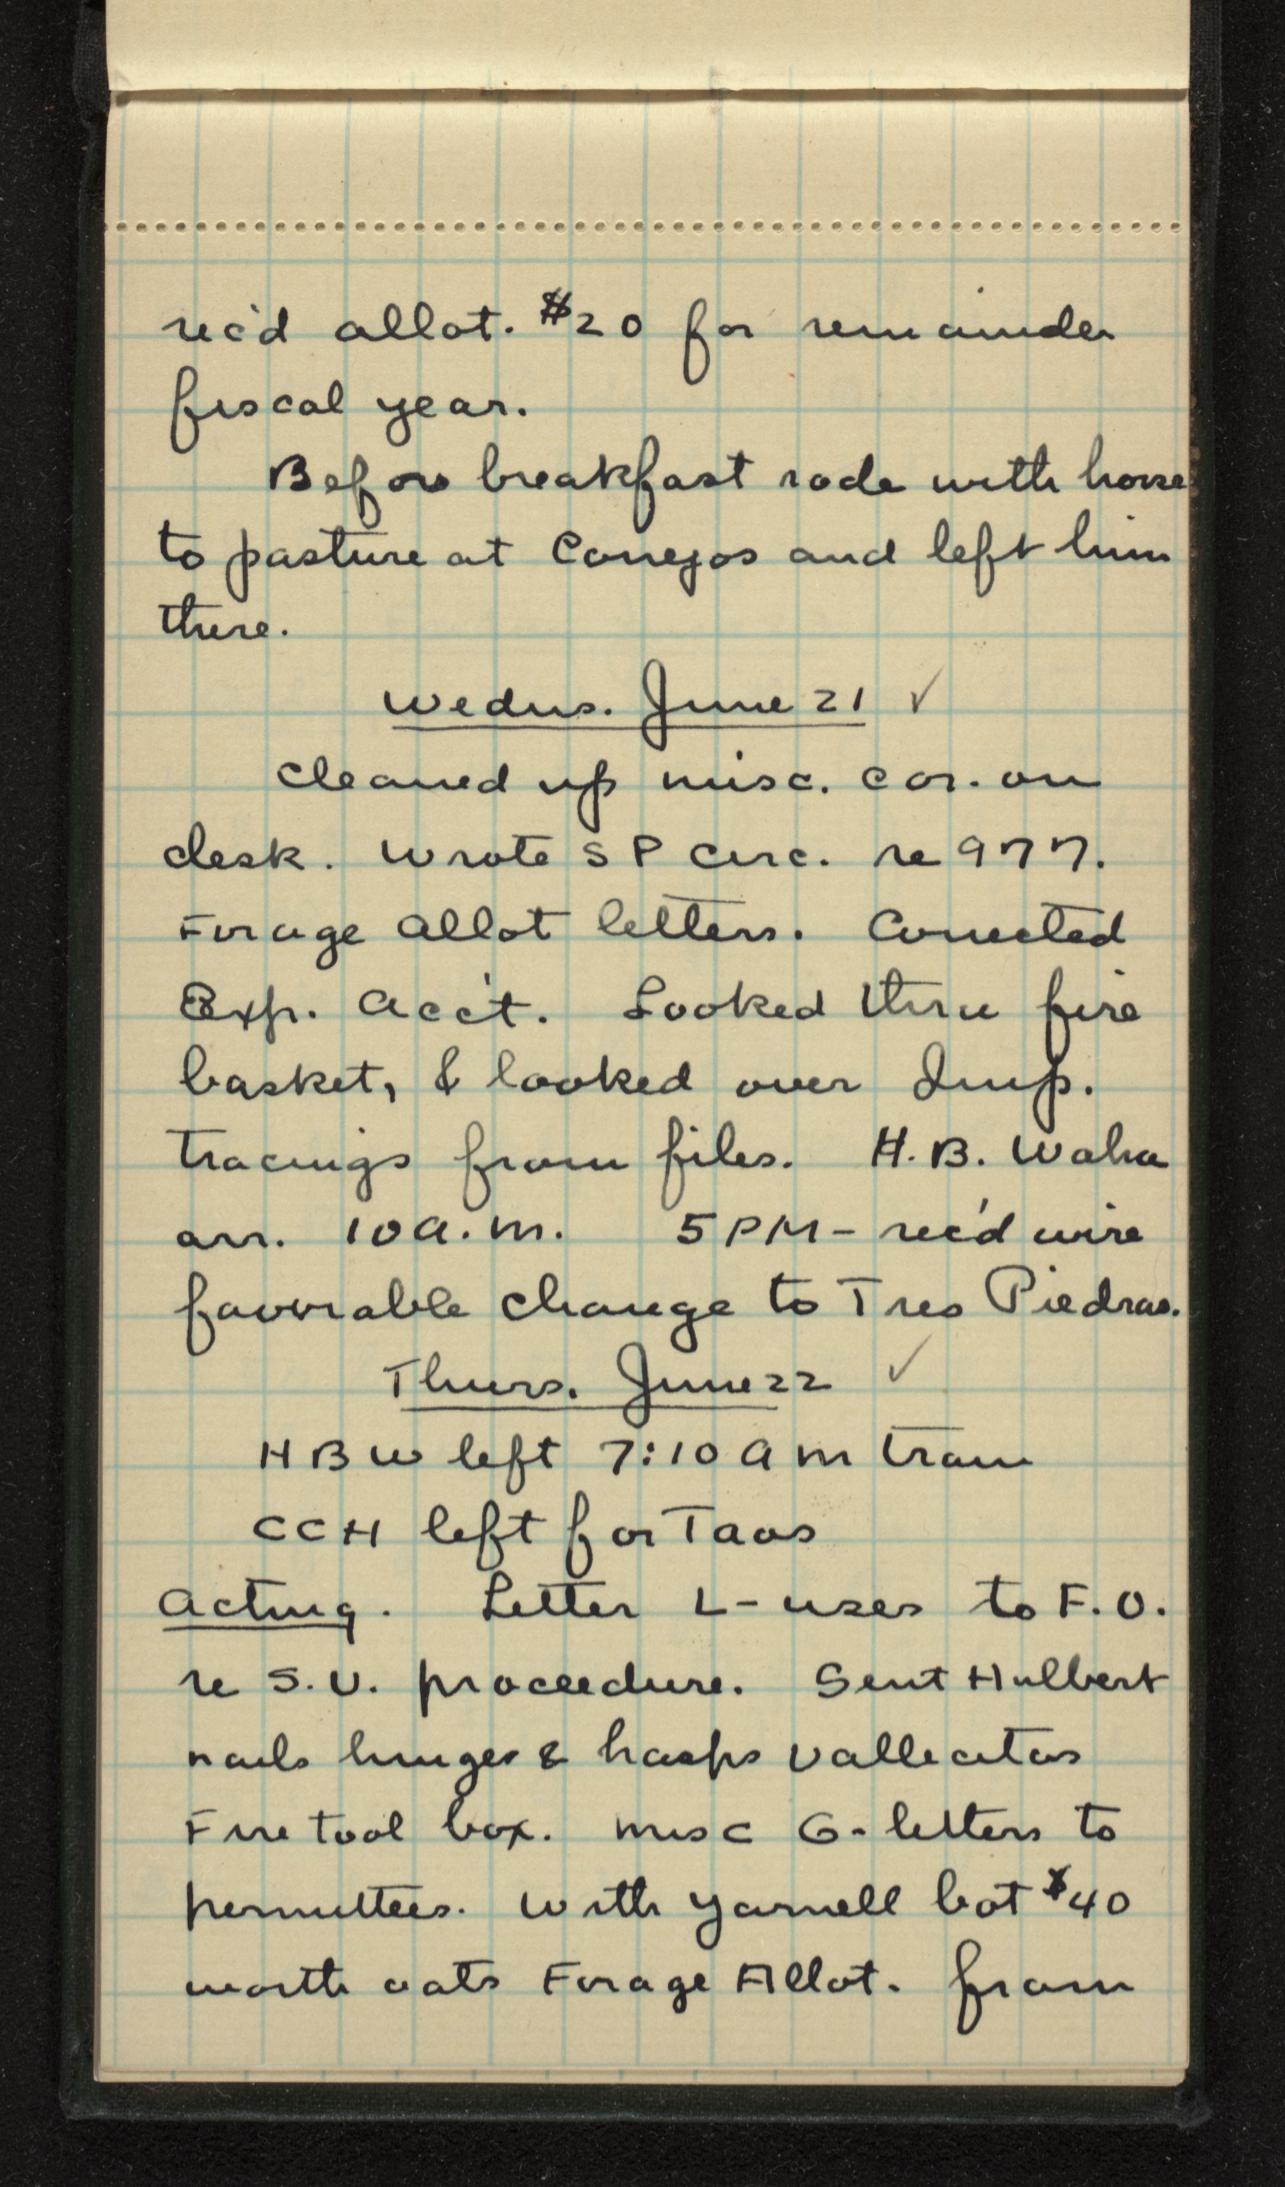 rec'd allot. $20 for remainder
fiscal year.
Before breakfast rode with horse
to pasture at Conejos and left him
there.
Wedns. June 21 ✓
Cleaned up misc. cor. on
desk. Wrote S P circ. re 977.
Forage Allot letters. Corrected
Exp. Acc't. Looked thru fire
basket, & looked over Imp.
tracings from files. H.B. Waha
arr. 10 a.m. 5 PM - rec'd wire
favorable change to Tres Piedras.
Thurs. June 22 ✓
H B W left 7:10 a m train
C C H left for Taos
Acting. Letter L- uses to F.O.
re S.U. proceedure. Sent Hulbert
nails hinges & hasps Vallecitos
Fire tool box. Misc G- letters to
permittees. With Yarnell bot $40
worth oats Forage Allot. from